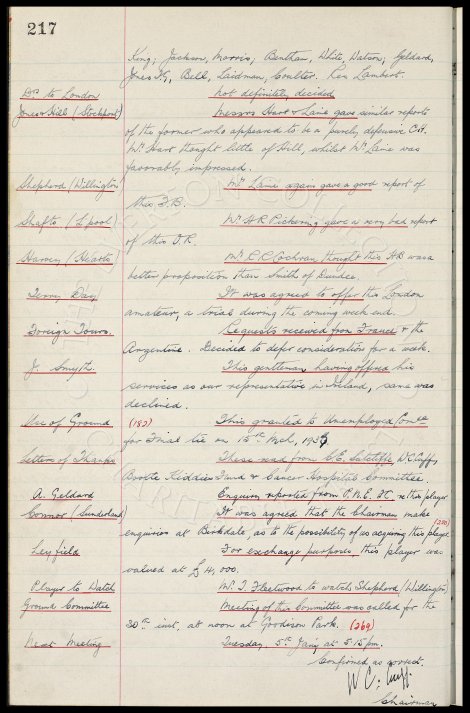 217
King, Jackson, Morris, Bentham, White, Watson, Geldard,
Jones T.G., Bell, Laidman, Coulter. Res Lambert.
Drs to London not definitely decided
Jones & Hill (Stockport) Messrs Hart & Lane gave similar reports
of the former who appeared to be a purely defensive C.H.
Mr Hart thought little of Hill, whilst Mr Lane was
favorably impressed.
Shepherd (Willington) Mr Lane again gave a good report of
this F.B.
Shafto (L'pool) Mr H.R Pickering gave a very bad report
of this O.R.
Harvey (Hearts) Mr E.C Cochran thought this HB was a
better proposition than Smith of Dundee.
Terry Day It was agreed to offer this London
amateur, a trial during the coming week end.
Foreign Tours. Requests received from France & the
Argentine. Decided to defer consideration for a week.
J. Smyth. This gentleman having offered his
services as our representative in Ireland, same was
declined.
Use of Ground (182) This granted to Unemployed Comee
for Final tie on 15th Mch, 1935
Letters of Thanks These read from C.E. Sutcliffe, W.C. Cuff,
Bootle Kiddies Fund & Cancer Hospital Committee.
A. Geldard Enquiry reported from P.N.E. F.C. re this player
Connor (Sunderland) It was agreed that the Chairman make (220)
enquiries at Birkdale, as to the possibility of us acquiring this player
Leyfield For exchange purposes this player was
valued at £4,000.
Player to Watch Mr. T. Fleetwood to watch Shepherd (Willington)
Ground Committee Meeting of this Committee was called for the
30th inst. at noon at Goodison Park. (269)
Next Meeting Tuesday, 5th Jan'y at 5.15pm.
Confirmed as correct.
W C. Cuff
Chairman